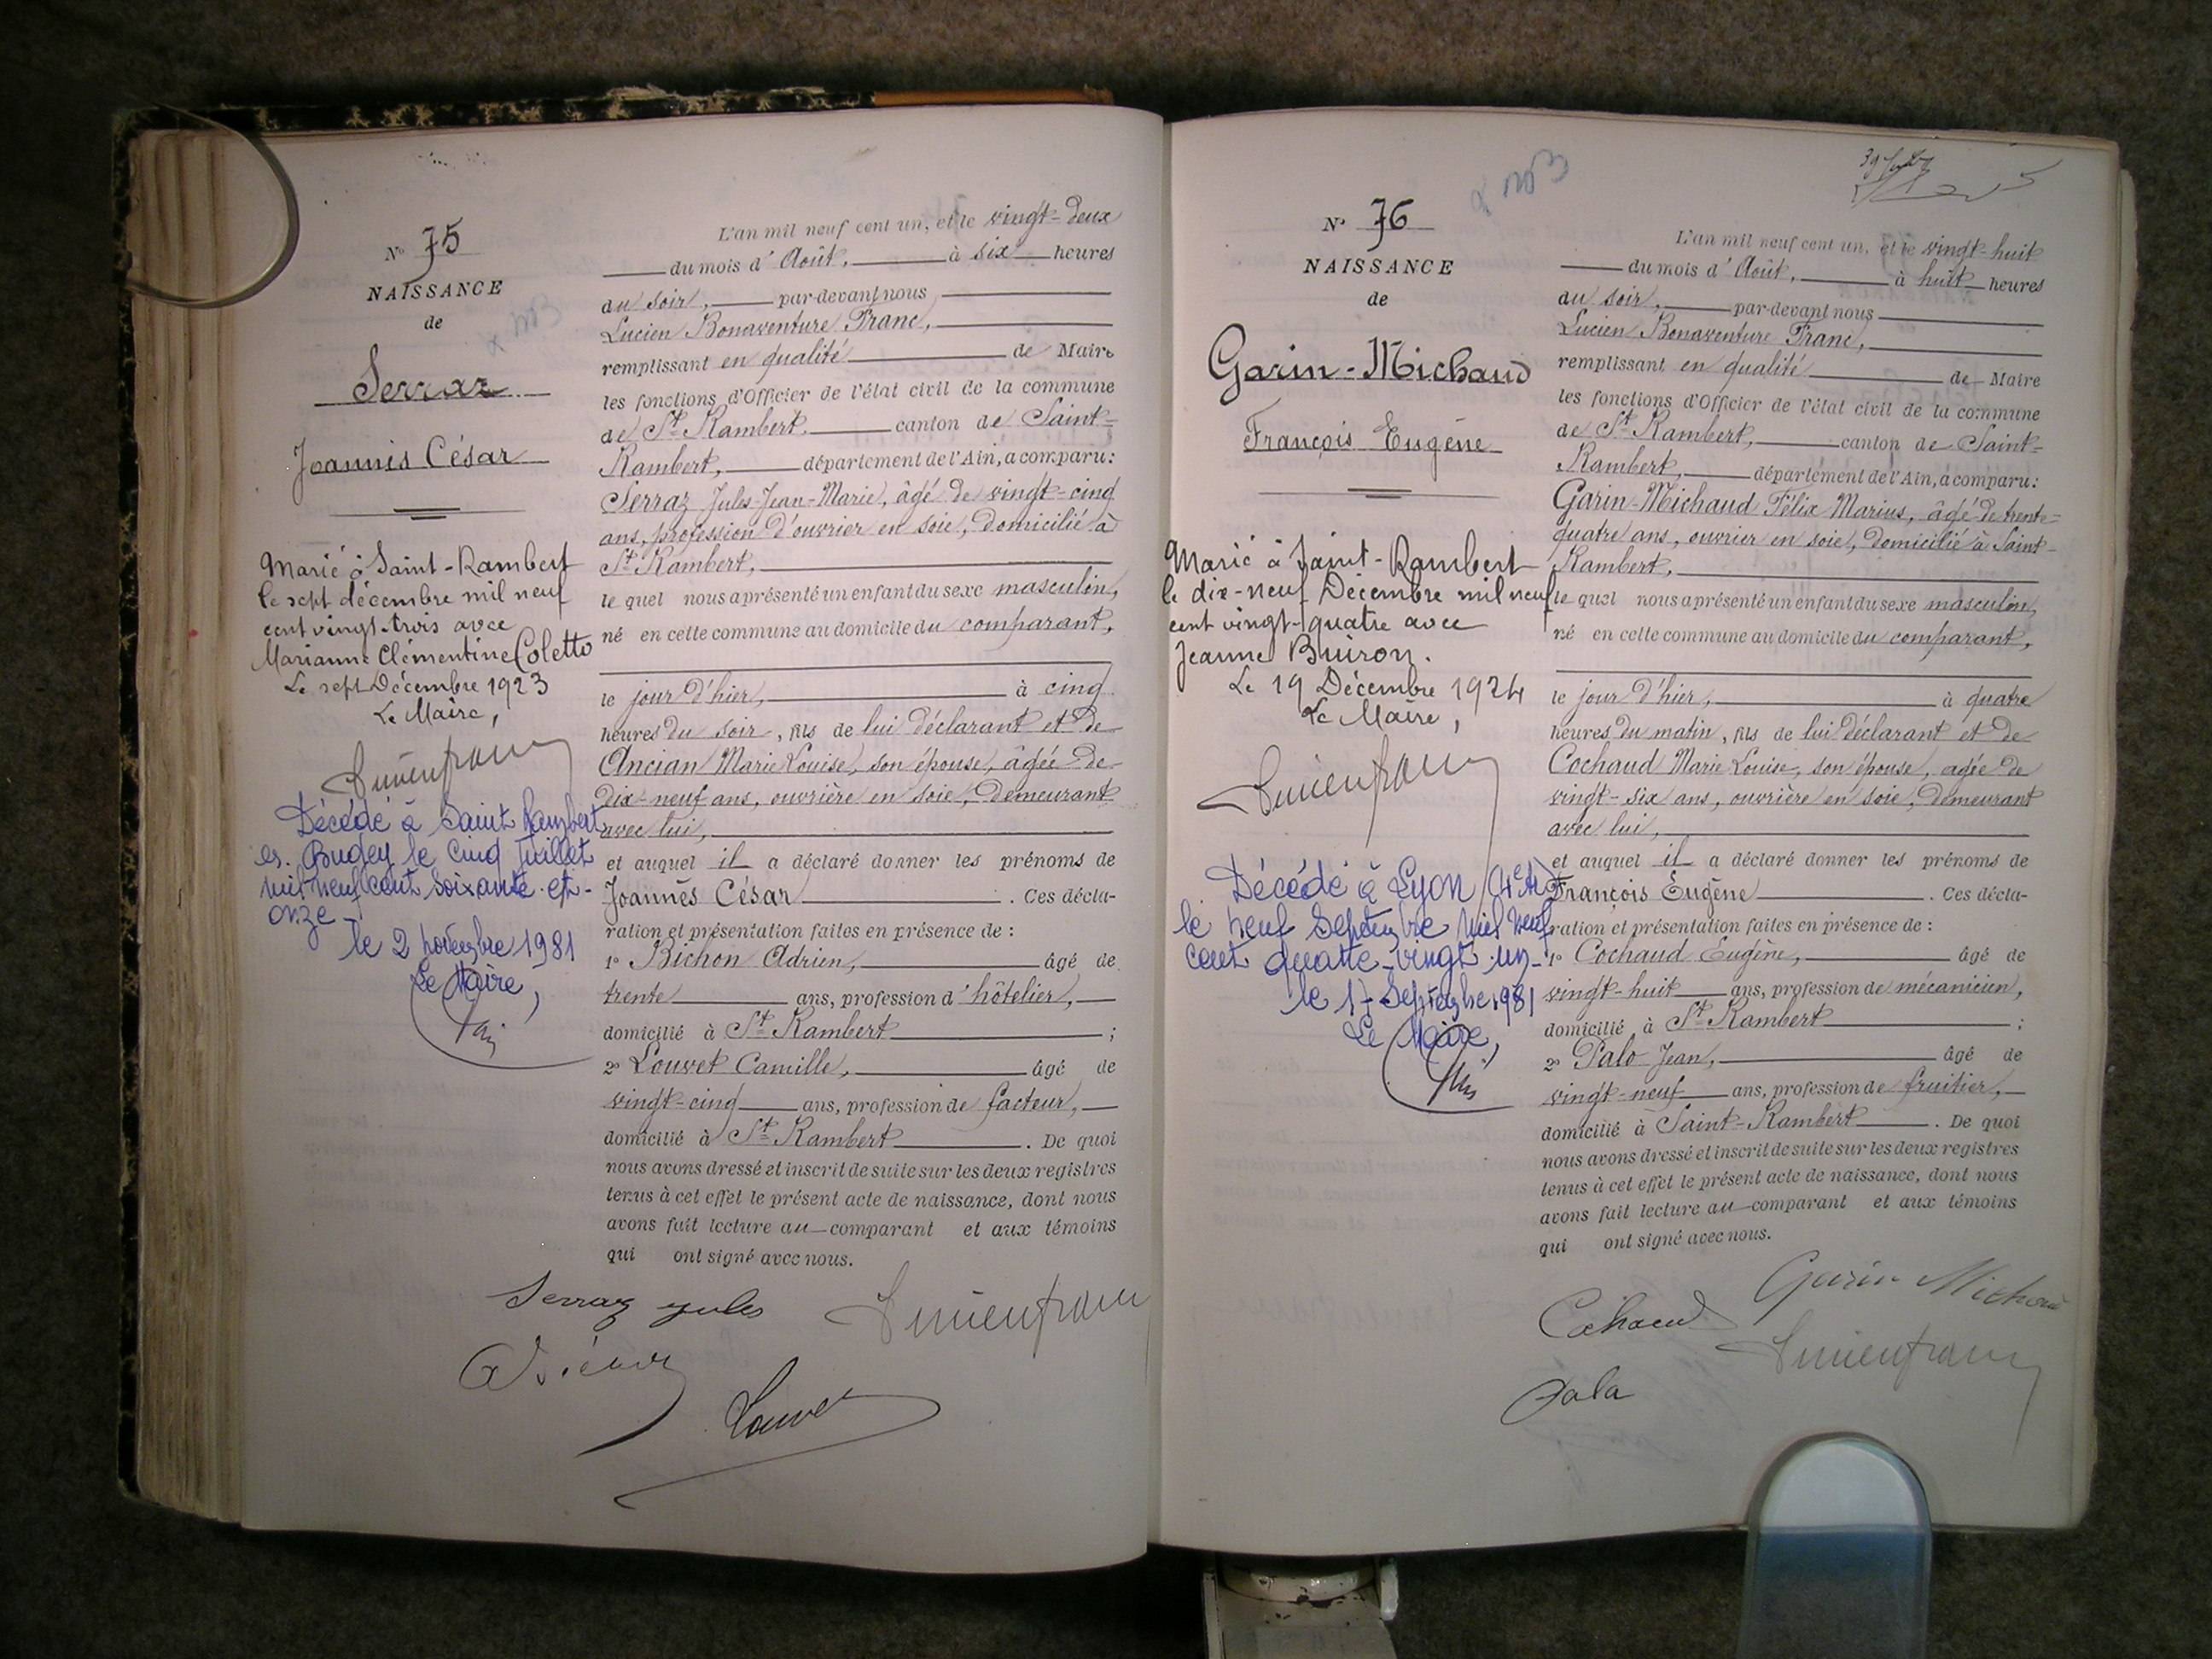 N° 75
NAISSANCE
de
Serraz
Joannès César
Marié à Saint-Rambert
le sept décembre mil neuf
cent vingt-trois avec
Marianne Clémentine Coletto
Le sept Décembre 1923
Le Maire,
Décédé à Saint Rambert
en Bugey le cinq juillet
mil neuf cent soixante et
onze
le 2 novembre 1981
Le Maire,
L'an mil neuf cent un, et le vingt-deux
du mois d'Août, à six heures
du soir, par-devant nous
Lucien Bonaventure Franc,
remplissant en qualité de Maire
les fonctions d'Officier de l'état civil de la commune
de St Rambert, canton de Saint-
Rambert, département de l'Ain, a comparu:
Serraz Jules-Jean-Marie, âgé de vingt-cinq
ans, profession d'ouvrier en soie, domicilié à
St Rambert,
le quel nous a présenté un enfant du sexe masculin,
né en cette commune au domicile du comparant,
le jour d'hier, à cinq
heures du soir, fils de lui déclarant et de
Ancian Marie Louise, son épouse, âgée de
dix-neuf ans, ouvrière en soie, demeurant
avec lui,
et auquel il a déclaré donner les prénoms de
Joannès César. Ces décla-
ration et présentation faites en présence de :
1° Bichon Adrien, âgé de
trente ans, profession d'hôtelier,
domicilié à St Rambert ;
2° Louvet Camille, âgé de
vingt-cinq ans, profession de facteur,
domicilié à St Rambert. De quoi
nous avons dressé et inscrit de suite sur les deux registres
tenus à cet effet le présent acte de naissance, dont nous
avons fait lecture au comparant et aux témoins
qui ont signé avec nous.
Serraz Jules Lucien franc
Louvet
N° 76
NAISSANCE
de
Garin-Michaud
François Eugène
Marié à Saint-Rambert
le dix-neuf Décembre mil neuf
cent vingt-quatre avec
Jeanne Buiron.
Le 19 Décembre 1924
Le Maire,
Lucien franc
Décédé à Lyon (4e Ar)
le neuf Septembre mil neuf
cent quatre-vingt-un
le 17 Septembre 1981
Le Maire,
L'an mil neuf cent un, et le vingt-huit
du mois d'Août, à huit heures
du soir, par-devant nous
Lucien Bonaventure Franc,
remplissant en qualité de Maire
les fonctions d'Officier de l'état civil de la commune
de St Rambert, canton de Saint-
Rambert, département de l'Ain, a comparu:
Garin-Michaud Félix Marius, âgé de trente-
quatre ans, ouvrier en soie, domicilié à Saint-
Rambert,
le quel nous a présenté un enfant du sexe masculin,
né en cette commune au domicile du comparant,
le jour d'hier, à quatre
heures du matin, fils de lui déclarant et de
Cochaud Marie Louise, son épouse, agée de
vingt-six ans, ouvrière en soie, demeurant
avec lui,
et auquel il a déclaré donner les prénoms de
François Eugène. Ces décla-
ration et présentation faites en présence de :
1° Cochaud Eugène, âgé de
vingt-huit ans, profession de mécanicien,
domicilié à St Rambert ;
2° Palo Jean, âgé de
vingt-neuf ans, profession de fruitier,
domicilié à Saint-Rambert. De quoi
nous avons dressé et inscrit de suite sur les deux registres
tenus à cet effet le présent acte de naissance, dont nous
avons fait lecture au comparant et aux témoins
qui ont signé avec nous.
Garin Michaud
Cochaud Lucien franc
Pala